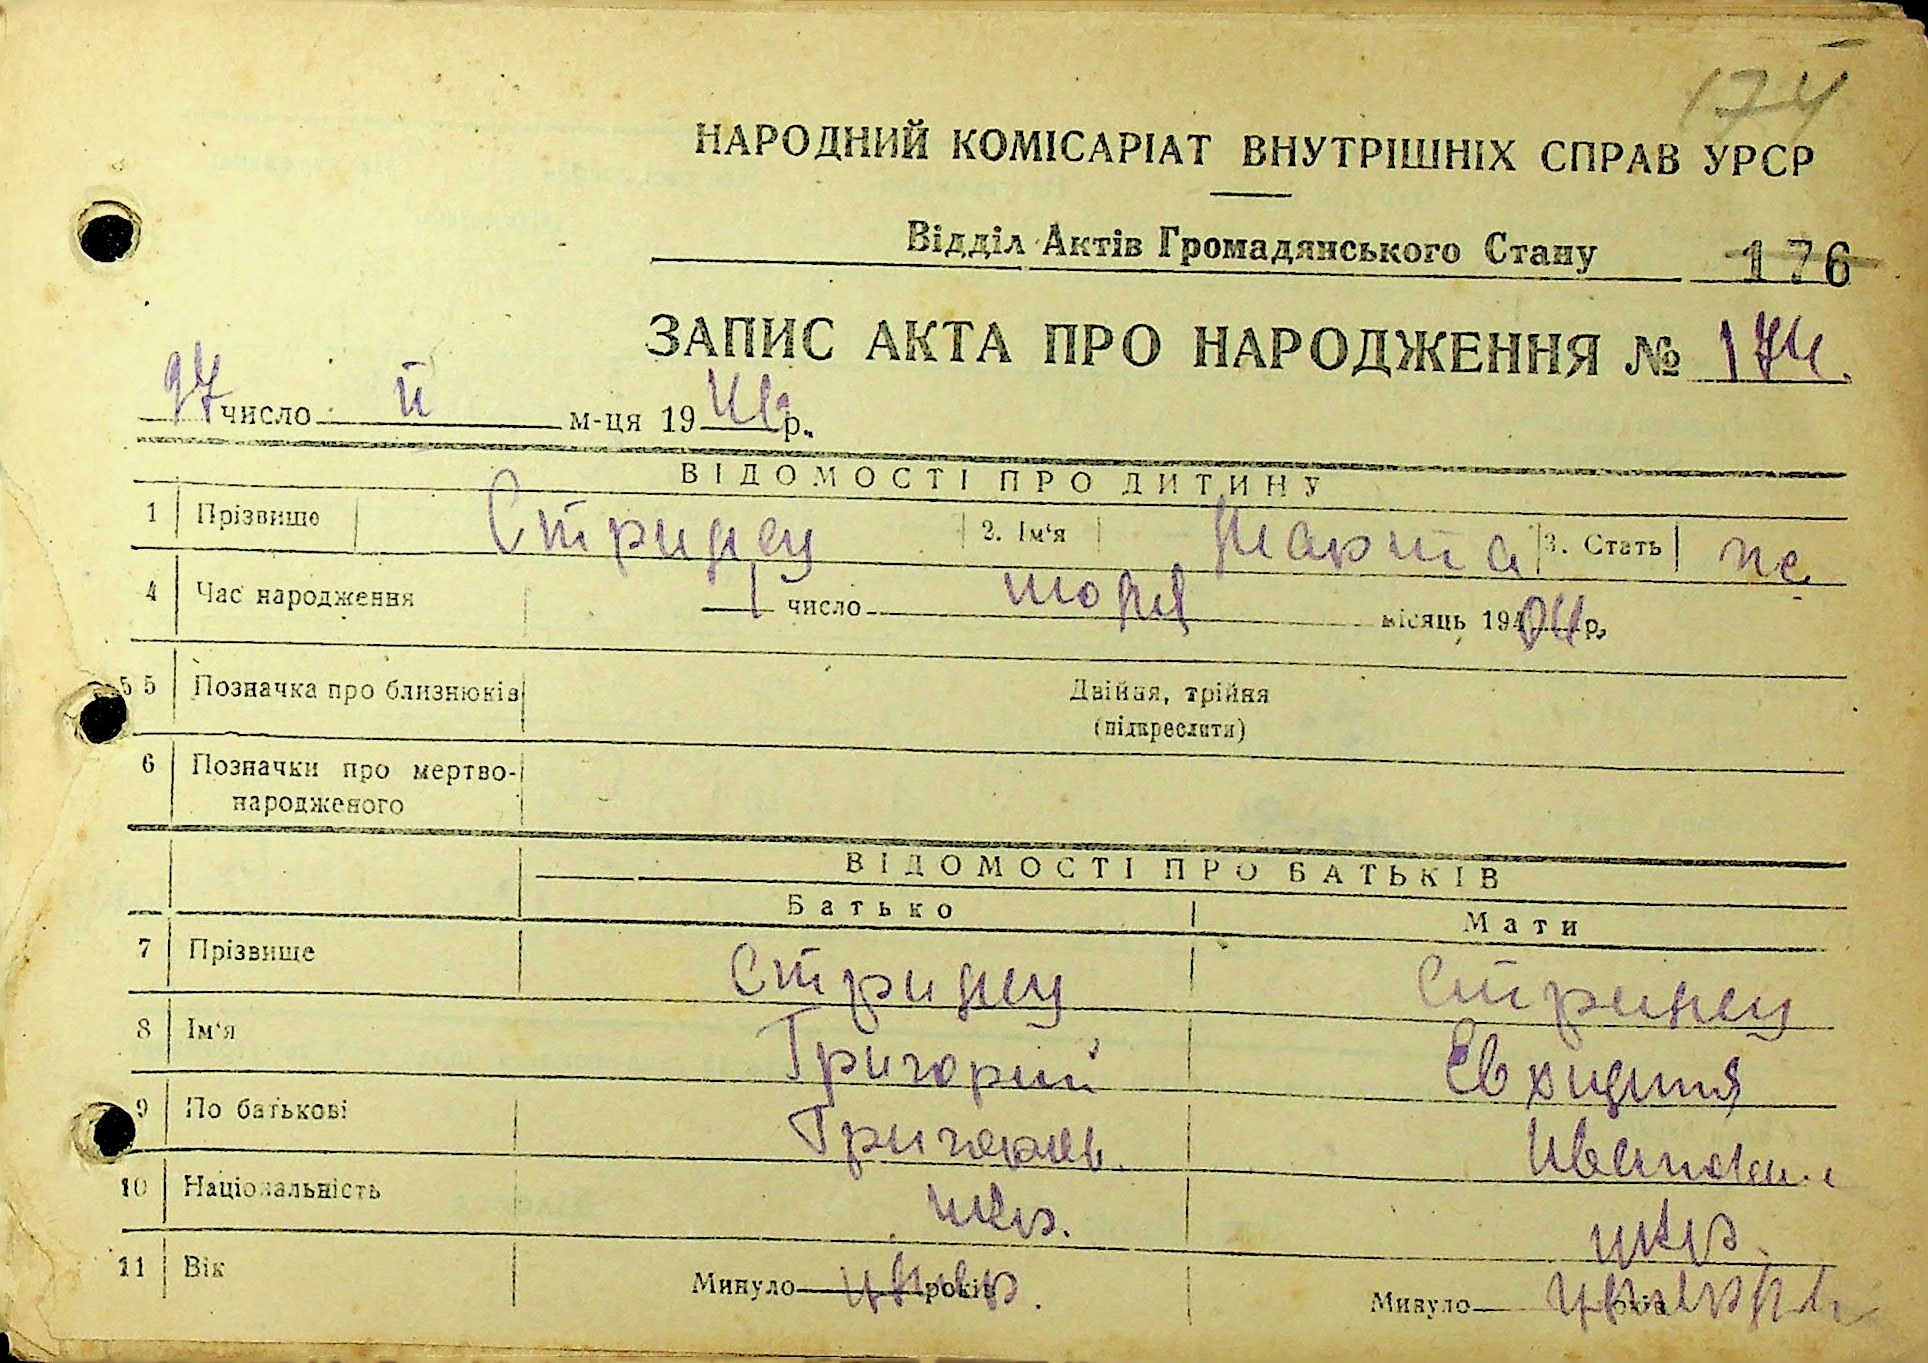 174
НАРОДНИЙ КОМІСАРІАТ ВНУТРІШНІХ СПРАВ УРСР
Відділ Актів Громадянського Стану 176
ЗАПИС АКТА ПРО НАРОДЖЕННЯ № 174.
27 число II м-ця 19 р.
ВІДОМОСТІ ПРО ДИТИНУ
1 Прізвище Стринец 2. Ім‘я Марта 3. Стать же
4 Час народження 1 число июля місяць 194 04 р.
5 5 Позначка про близнюків Двійня, трійня
(підкреслити)
6 Позначки про мертво-
народженого
ВІДОМОСТІ ПРО БАТЬКІВ
Батько Мати
7 Прізвище Стринец Стринец
8 Ім‘я Григорий Евдокия
9 По батькові Григоров.
10 Національність укр. укр.
11 Вік Минуло років Минуло років